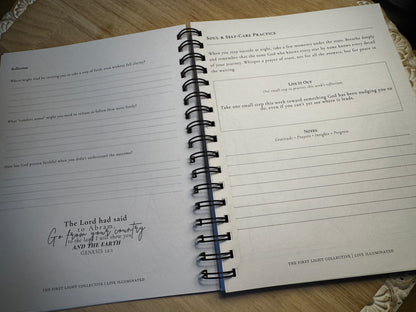 Reflection
Where might God be inviting you to take a step of faith even without full clarity?
What "comfort zones" might you need to release to follow Him more freely?
How has God proven faithful when you didn't understand the outcome?
The Lord had said
to Abram,
Go from your country
to the land I will show you
AND THE EARTH
GENESIS 12:1
THE FIRST LIGHT COLLECTIVE | LIVE ILLUMINATED
Soul & Self-Care Practice
When you step outside at night, take a few moments under the stars. Breathe deeply
and remember that the same God who knows every star by name knows every detail
of your journey. Whisper a prayer of trust, not for all the answers, but for peace in
the waiting.
Live It Out
One small step to practice this week's reflection.
Take one small step this week toward something God has been nudging you to
do, even if you can't yet see where it leads.
Notes
Gratitude • Prayers • Insights • Progress
THE FIRST LIGHT COLLECTIVE | LIVE ILLUMINATED